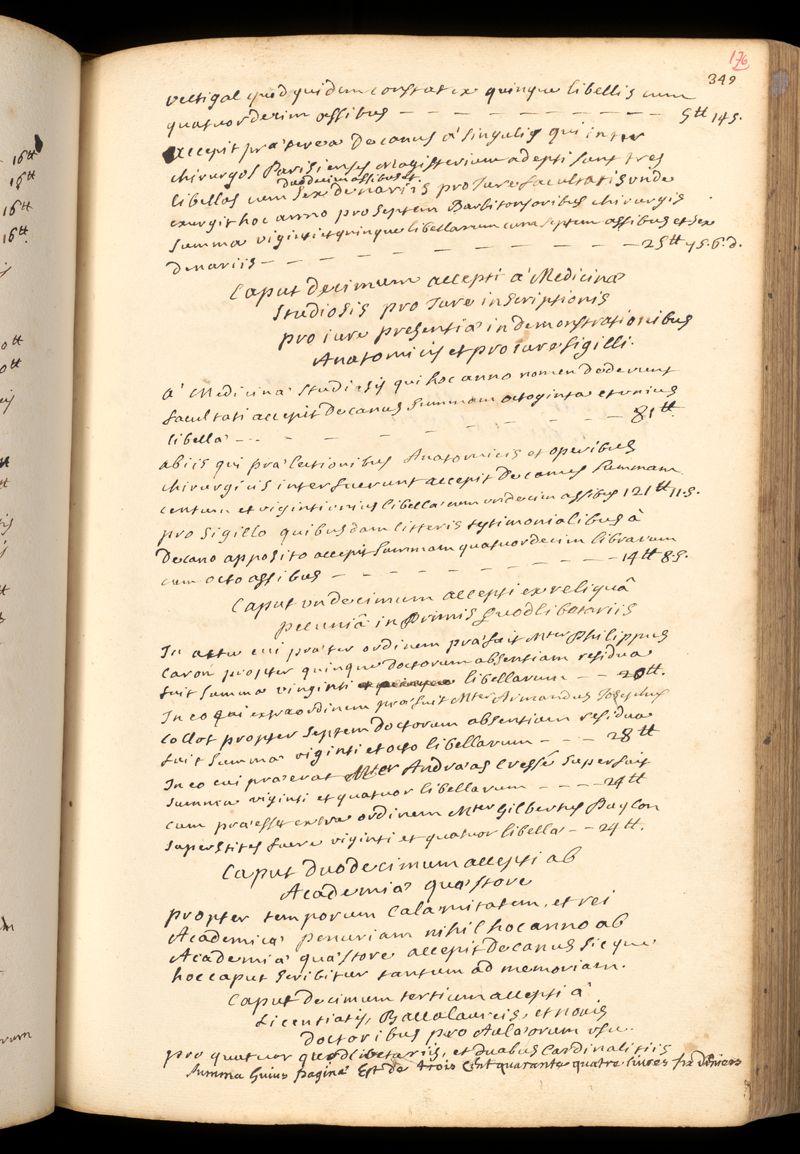 176
349
vectigal quod quidem constat ex quinque libellis cum
quatuordecim assibus — — — — — — 5tt 14s.
accepit praeterea Decanus a' singulis qui inter
chirurgos Parisienses Magisterium adepti sunt tres
duodecim assibus et
libellas cum sex denariis pro Jure facultatis unde
exurgit hoc anno pro septem Barbitonsoribus chirurgis
summa viginti et quinque libellarum cum septem assibus et sex
denariis — — — — — — — — 25tt 7s. 6. d.
Caput decimum accepti a' Medicinae
Studiosis pro Jure inscriptionis
pro iure presentiae in demonstrationibus
Anatomicis et pro iure sigilli.
A' Medicinae studiosis qui hoc anno nomen dederunt
facultati accepit Decanus summam octoginta et unius
libellae — — — — — — — — 81tt
ab iis qui praelectionibus Anatomicis et operibus
chirurgicis interfuerunt accepit Decanus summam
centum et viginti unius libellae cum undecim assibus 121tt 11s.
pro sigillo quibusdam litteris testimonialibus à
Decano apposito accepit summam quatuordecim librarum
cum octo assibus — — — — — — — 14tt 8s.
Caput undecimum accepti ex reliquâ
pecuniâ in Primis Quodlibetariis
In actu cui praeter ordinem praefuit Mter Philippus
Caron propter quinque doctorum absentiam residua
fuit summa vinginti libellarum — — 20tt.
In eo qui extraordinem praefuit Mter Armandus Josephus
Collot propter septem doctorum absentiam residua
fuit summa viginti et octo libellarum — — — 28tt
In eo cui praeerat Mter Andraeas Cressé superfuit
summa viginti et quatuor libellarum — — — — 24tt
cum praeesset extra ordinem Mter Gilbertus Puylon
superstites fuere viginti et quatuor libellae — — 24tt.
Caput duodecimum accepti ab
Academiae quaestore
propter temporum calamitatem, et rei
Academicae penuriam nihil hoc anno ab
Academiae quaestore accepit Decanus sicque
hoc caput scribitur tantum ad memoriam.
Caput decimum tertium accepti a'
Licentiatis, Baccalaureis, et novis
doctoribus pro Aularum usu.
pro quatuor quodlibetariis, et duabus Cardinalitiis
Summa huius paginae Est de trois Cent quarante quatre livres six deniers